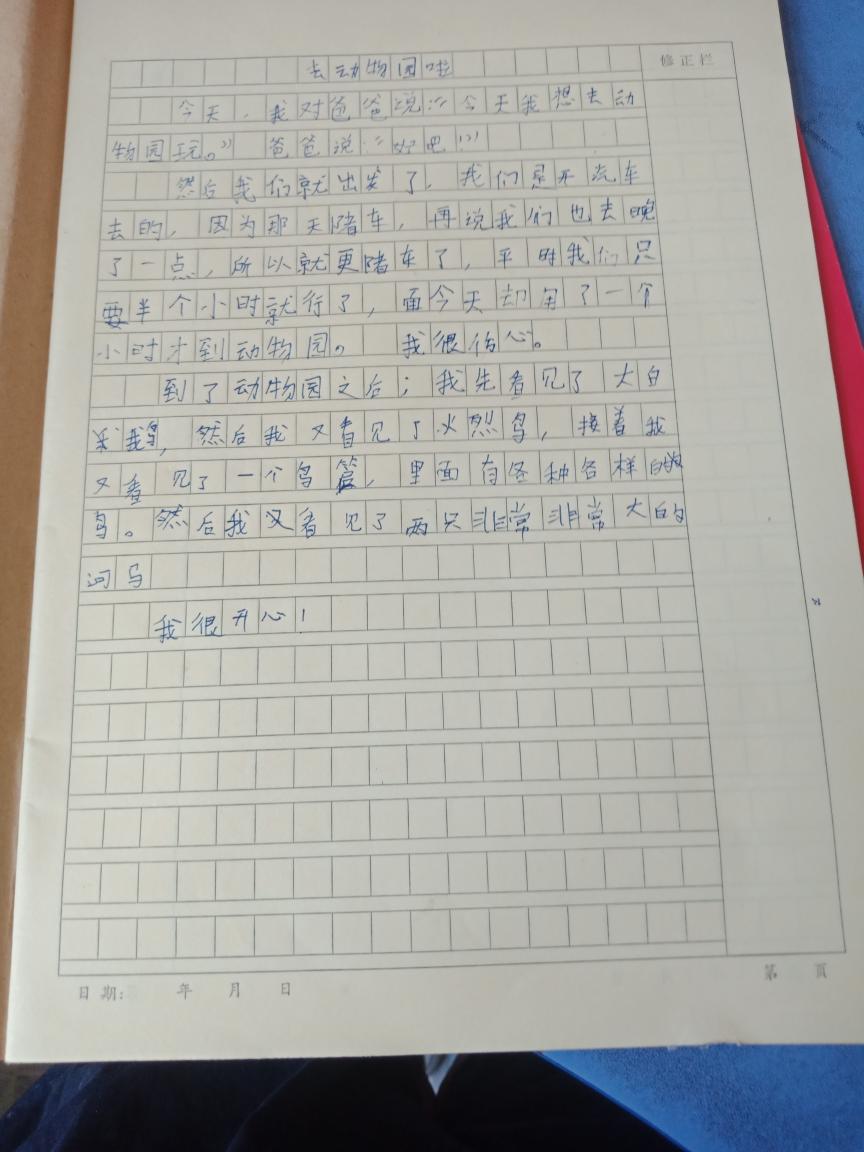 去动物园啦
修正栏
今天，我对爸爸说：“今天我想去动
物园玩。” 爸爸说：“好吧！”
然后我们就出发了，我们是开汽车
去的，因为那天赌车，再说我们也去晚
了一点，所以就更赌车了，平时我们只
要半个小时就行了，面今天却用了一个
小时才到动物园。 我很伤心。
到了动物园之后；我先看见了大白
鹅，然后我又看见了火烈鸟，接着我
又看见了一个鸟笼，里面有各种各样的
鸟。然后我又看见了两只非常非常大的
河马
我很开心！
日期: 年 月 日
第 页